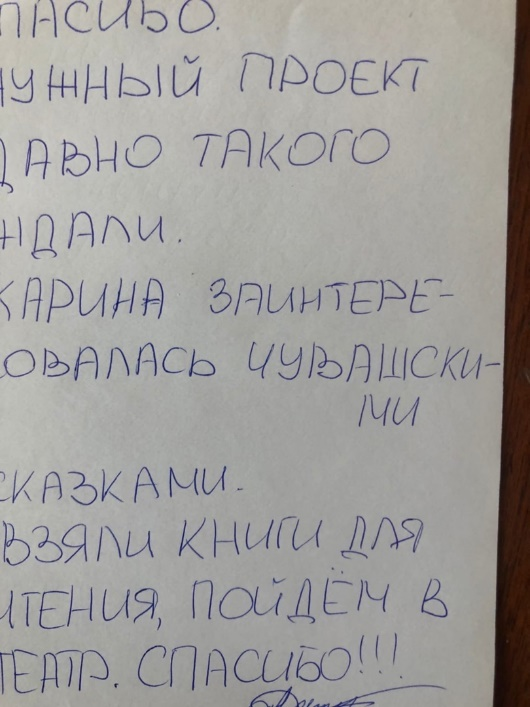 ПАСИБО.
НУЖНЫЙ ПРОЕКТ
ДАВНО ТАКОГО
НДАЛИ.
КАРИНА ЗАИНТЕРЕ-
ОВАЛАСЬ ЧУВАШСКИ-
МИ
СКАЗКАМИ.
ВЗЯЛИ КНИГИ ДЛЯ
ЧТЕНИЯ, ПОЙДЁМ В
ТЕАТР. СПАСИБО!!!